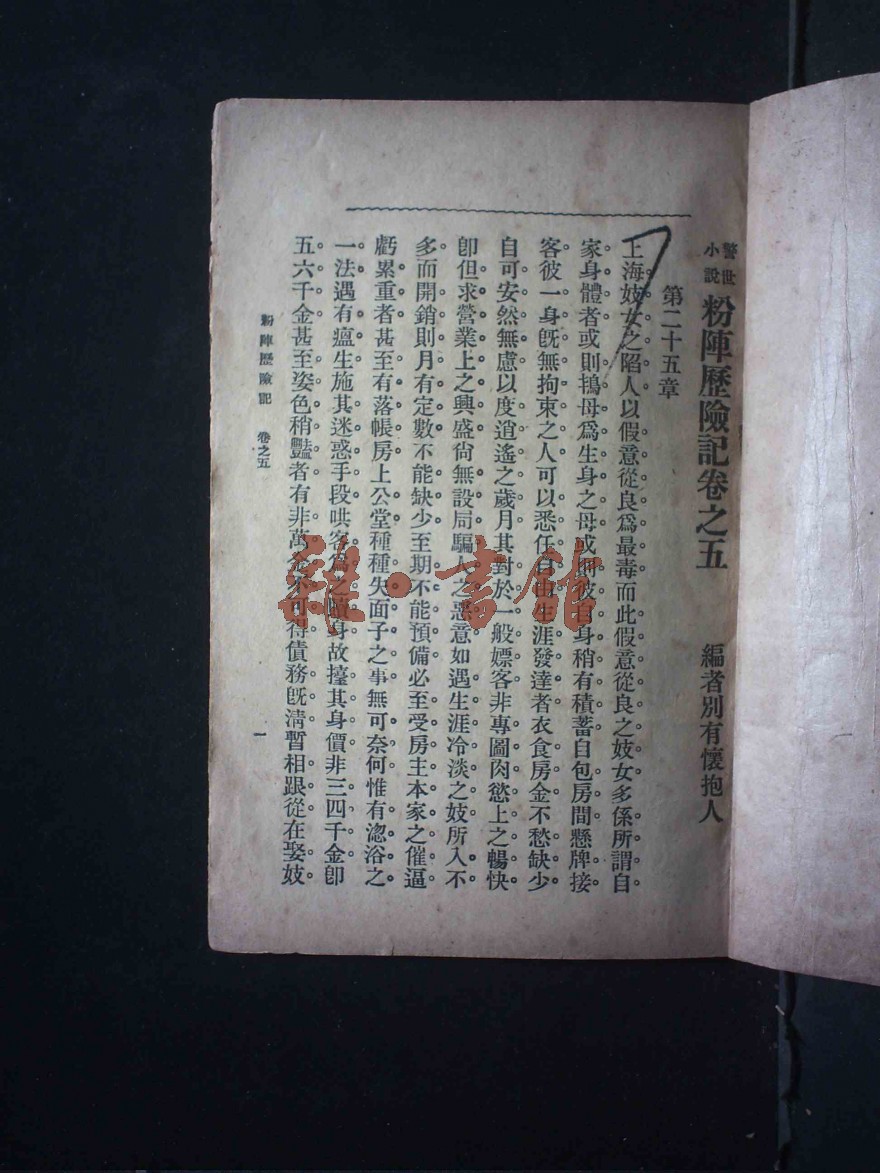 警世小說 粉陣歷險記卷之五 編者別有懷抱人
第二十五章
上海妓女之陷人以假意從良爲最毒而此假意從良之妓女多係所謂自
家身體者或則鴇母爲生身之母或則彼自身稍有積蓄自包房間懸牌接
客彼一身既無拘束之人可以悉任自由生涯發達者衣食房金不愁缺少
自可安然無慮以度逍遙之歲月其對於一般嫖客非專圖肉慾上之暢快
卽但求營業上之興盛尙無設局騙人之惡意如遇生涯冷淡之妓所入不
多而開銷則月有定數不能缺少至期不能預備必至受房主本家之催逼
虧累重者甚至有落帳房上公堂種種失面子之事無可奈何惟有淴浴之
一法遇有瘟生施其迷惑手段哄客爲之贖身故擡其身價非三四千金卽
五六千金甚至姿色稍豔者有非萬金不可得債務既清暫相跟從在娶妓
粉陣歷險記 卷之五
一
雜·書館